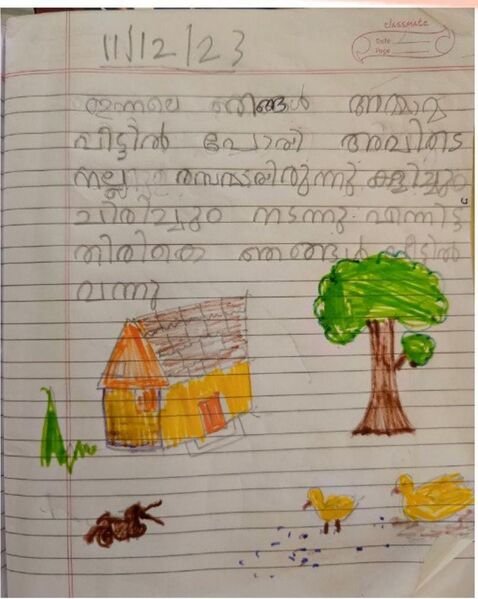 classmate
Date
Page
11/12/23
ഇന്നലെ ഞങ്ങൾ അമ്മമ്മ
വീട്ടിൽ പോയി അവിടെ
നല്ല രസമായിരുന്നു കളിച്ചും
ചിരിച്ചും നടന്നു പിന്നിട്ട്
തിരികെ ഞങ്ങൾ വീട്ടിൽ
വന്നു